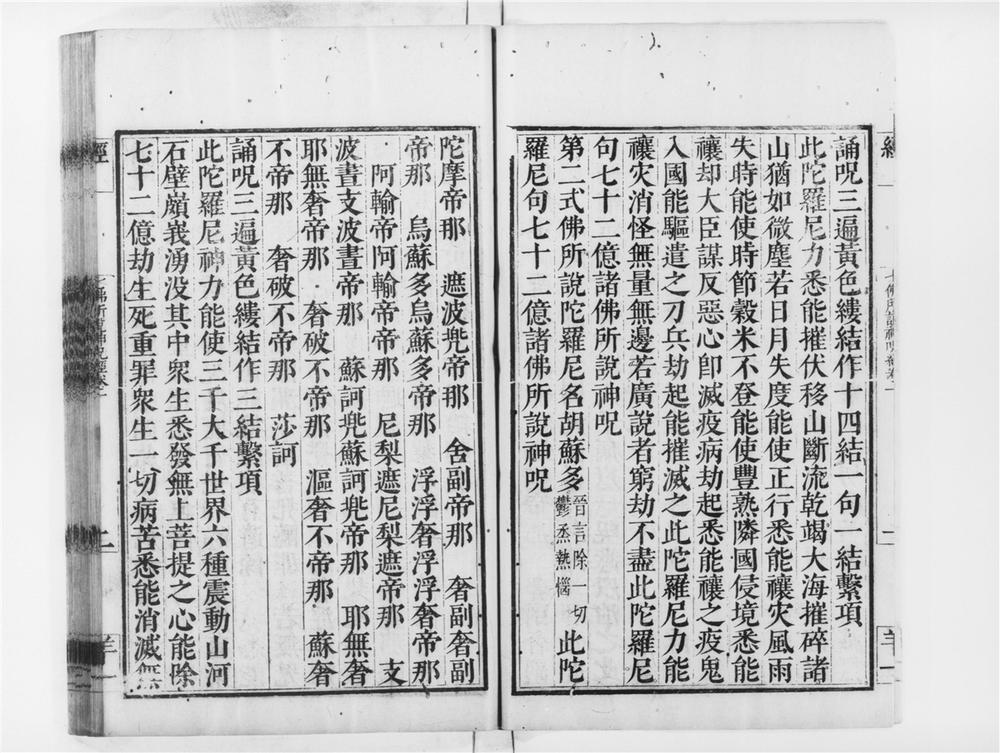 誦呪三遍黃色縷結作十四結一句一結繫項
此陀羅尼力悉能摧伏移山斷流乾竭大海摧碎諸
山猶如微塵若日月失度能使正行悉能禳灾風雨
失時能使時節穀米不登能使豐熟隣國侵境悉能
禳却大臣謀反惡心卽滅疫病劫起悉能禳之疫鬼
入國能驅遣之刀兵劫起能摧滅之此陀羅尼力能
禳灾消怪無量無邊若廣說者窮劫不盡此陀羅尼
句七十二億諸佛所說神呪
第二式佛所說陀羅尼名胡蘇多晉言除一切鬱烝熱惱此陀
羅尼句七十二億諸佛所說神呪
陀摩帝那 遮波兜帝那 舍副帝那 奢副奢副
帝那 烏蘇多烏蘇多帝那 浮浮奢浮浮奢帝那
阿輸帝阿輸帝帝那 尼梨遮尼梨遮帝那 支
波晝支波晝帝那 蘇訶兜蘇訶兜帝那 耶無奢
耶無奢帝那 奢破不帝那 漚奢不帝那 蘇奢
不帝那 奢破不帝那 莎訶
誦呪三遍黃色縷結作三結繫項
此陀羅尼神力能使三千大千世界六種震動山河
石壁巔峩湧沒其中衆生悉發無上菩提之心能除
七十二億劫生死重罪衆生一切病苦悉能消滅無
經
二
羊一
二
羊一